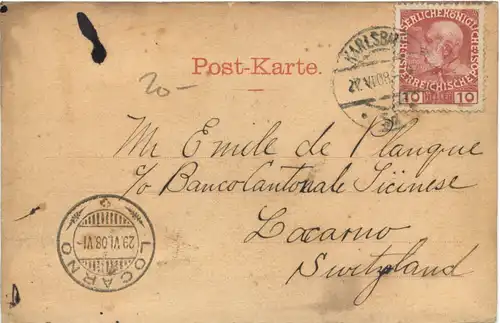 Post-Karte.
20-
KARLSBAD
27.VI.08
5a
KAISERLICHEKÖNIGLICHE
ÖSTERREICHISCHE POST
10 HELLER 10
Mr Emile de Planque
c/o Banco Cantonale Ticinese
Locarno
Switzland
LOCARNO
29.VI.08.VI